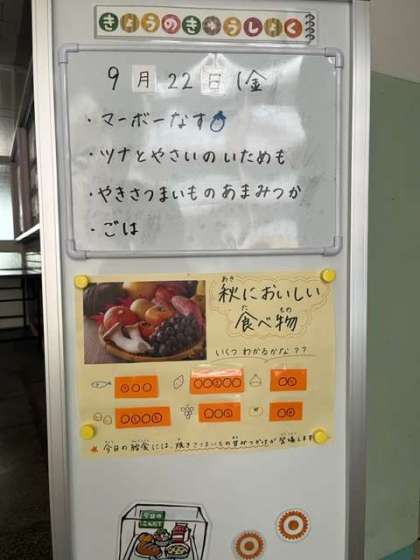 きょうのきゅうしょく
9月22日(金
・マーボーなす
・ツナとやさいのいためも
・やきさつまいものあまみつか
・ごは
秋においしい
食べ物
いくつわかるかな??
今日の給食には、焼きさつまいもの甘みつがけが登場します
今日の
こんだて